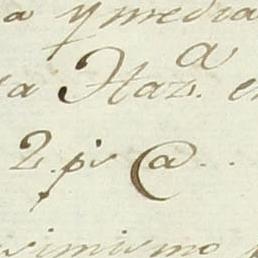 a y media
a Haz.a en
2. ps @ . .
simismo